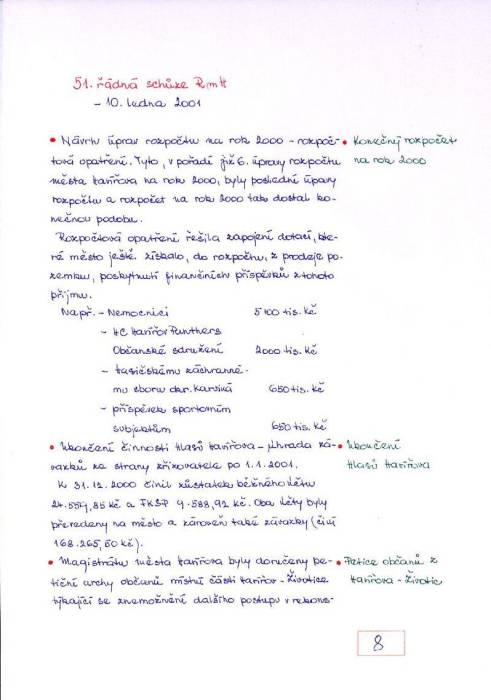 51. řádná schůze RmH
- 10. ledna 2001
• Návrhy úprav rozpočtu na rok 2000 - rozpoč-
tová opatření. Tyto, v pořadí již 6. úpravy rozpočtu
města Havířova na rok 2000, byly poslední úpravy
rozpočtu a rozpočet na rok 2000 tak dostal ko-
nečnou podobu.
• Konečný rozpočet
na rok 2000
Rozpočtová opatření řešila zapojení dotací, kte-
ré město ještě získalo, do rozpočtu, z prodeje po-
zemku, poskytnutí finančních příspěvků z tohoto
příjmu.
Např. - Nemocnici 5 100 tis. Kč
- HC Havířov Panthers
Občanské sdružení 2000 tis. Kč
- Hasičskému záchranné-
mu sboru okr. Karviná 650 tis. Kč
- příspěvek sportovním
subjektům 650 tis. Kč
• Ukončení činnosti Hlasů Havířova - úhrada zá-
vazků ze strany zřizovatele po 1.1.2001.
• Ukončení
Hlasů Havířova
K 31.12.2000 činil zůstatek běžného účtu
24.559,85 Kč a FKSP 9.588,92 Kč. Oba účty byly
převedeny na město a zároveň také závazky (činí
168.265,50 Kč).
• Magistrátu města Havířova byly doručeny pe-
tiční archy občanů místní části Havířov - Životice
týkající se znemožnění dalšího postupu v rekons-
• Petice občanů z
Havířova - Životic
8